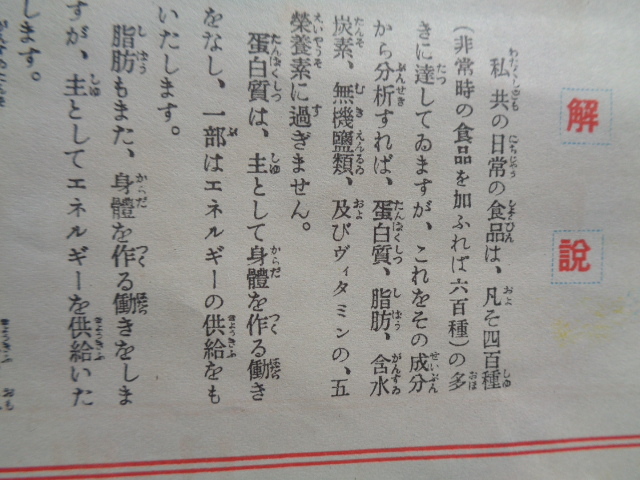 解說
私共の日常の食品は、凡そ四百種
(非常時の食品を加ふれば六百種)の多
きに達してゐますが、これをその成分
から分析すれば、蛋白質、脂肪、含水
炭素、無機鹽類、及びヴィタミンの、五
榮養素に過ぎません。
蛋白質は、主として身體を作る働き
をなし、一部はエネルギーの供給をも
いたします。
脂肪もまた、身體を作る働きをしま
すが、主としてエネルギーを供給いた
します。